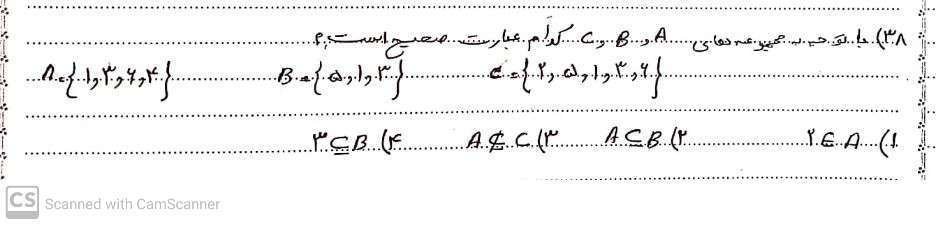 ۳۸) با توجه به مجموعه های A و B و C کدام عبارت صحیح است؟
A={۱,۳,۶,۴} B={۵,۱,۳} C={۲,۵,۱,۳,۶}
۱) ۲∈A ۲) A⊆B ۳) A⊄C ۴) ۳⊆B
CS Scanned with CamScanner